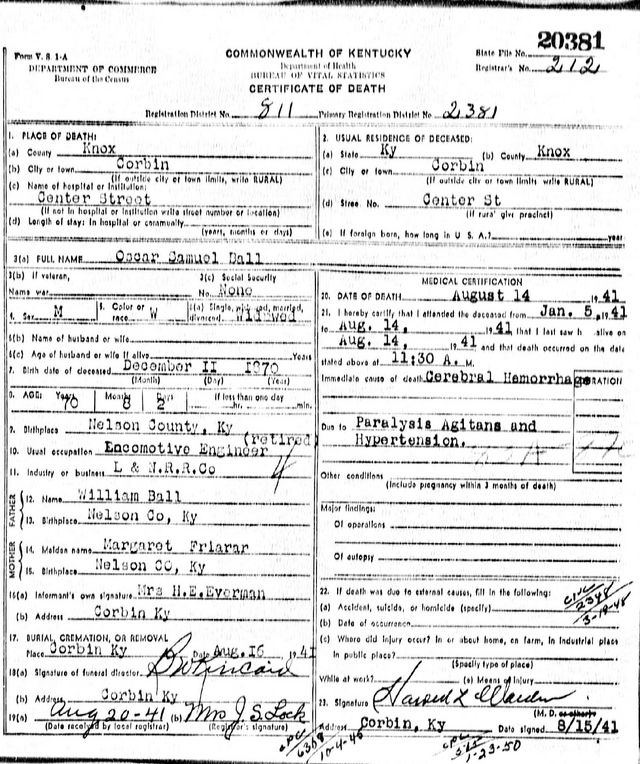 20381
Form V. S. 1-A
DEPARTMENT OF COMMERCE
Bureau of the Census
COMMONWEALTH OF KENTUCKY
Department of Health
BUREAU OF VITAL STATISTICS
CERTIFICATE OF DEATH
State File No.
Registrar's No. 212
Registration District No. 811 Primary Registration District No. 2381
1. PLACE OF DEATH:
(a) County Knox
(b) City or town Corbin
(If outside city or town limits, write RURAL)
(c) Name of hospital or institution:
Center Street
(If not in hospital or institution write street number or location)
(d) Length of stay: In hospital or community
(years, months or days)
2. USUAL RESIDENCE OF DECEASED:
(a) State Ky (b) County Knox
(c) City or town Corbin
(If outside city or town limits, write RURAL)
(d) Street No. Center St
(If rural give precinct)
(e) If foreign born, how long in U. S. A.? year
3(a) FULL NAME Oscar Samuel Ball
3(b) If veteran, 3(c) Social Security
Name war No. None
4. Sex M 5. Color or race W 6(a) Single, widowed, married, divorced widowed
6(b) Name of husband or wife
6(c) Age of husband or wife if alive Years
7. Birth date of deceased December II 1870
(Month) (Day) (Year)
8. AGE: Years 70 Months 8 Days 2 If less than one day hr. min.
9. Birthplace Nelson County, Ky
(retired)
10. Usual occupation Locomotive Engineer
11. Industry or business L & N.R.R.Co
4
FATHER
12. Name William Ball
13. Birthplace Nelson Co, Ky
MOTHER
14. Maiden name Margaret Friarar
15. Birthplace Nelson CO, Ky
16(a) Informant's own signature Mrs H.E.Everman
(b) Address Corbin Ky
17. BURIAL, CREMATION, OR REMOVAL
Place Corbin Ky Date Aug. 16 1941
18(a) Signature of funeral director
(b) Address Corbin Ky
19(a) Aug 20-41 (b) Mrs J. S. Lock
(Date received by local registrar) (Registrar's signature)
MEDICAL CERTIFICATION
20. DATE OF DEATH August 14 1941
21. I hereby certify that I attended the deceased from Jan. 5, 1941
to Aug. 14, 1941 that I last saw h alive on
Aug. 14, 1941 and that death occurred on the date
stated above at 11:30 A. M.
Immediate cause of death Cerebral Hemorrhage DURATION
Due to Paralysis Agitans and
Hypertension.
Other conditions
(Include pregnancy within 3 months of death)
Major findings:
Of operations
Of autopsy
22. If death was due to external causes, fill in the following:
(a) Accident, suicide, or homicide (specify)
2348
3-19-48
(b) Date of occurrence
(c) Where did injury occur? In or about home, on farm, in industrial place
in public place?
(Specify type of place)
While at work? (e) Means of Injury
23. Signature
(M. D. or other)
Address Corbin, Ky Date signed 8/15/41
6308
10-4-48
1-23-50